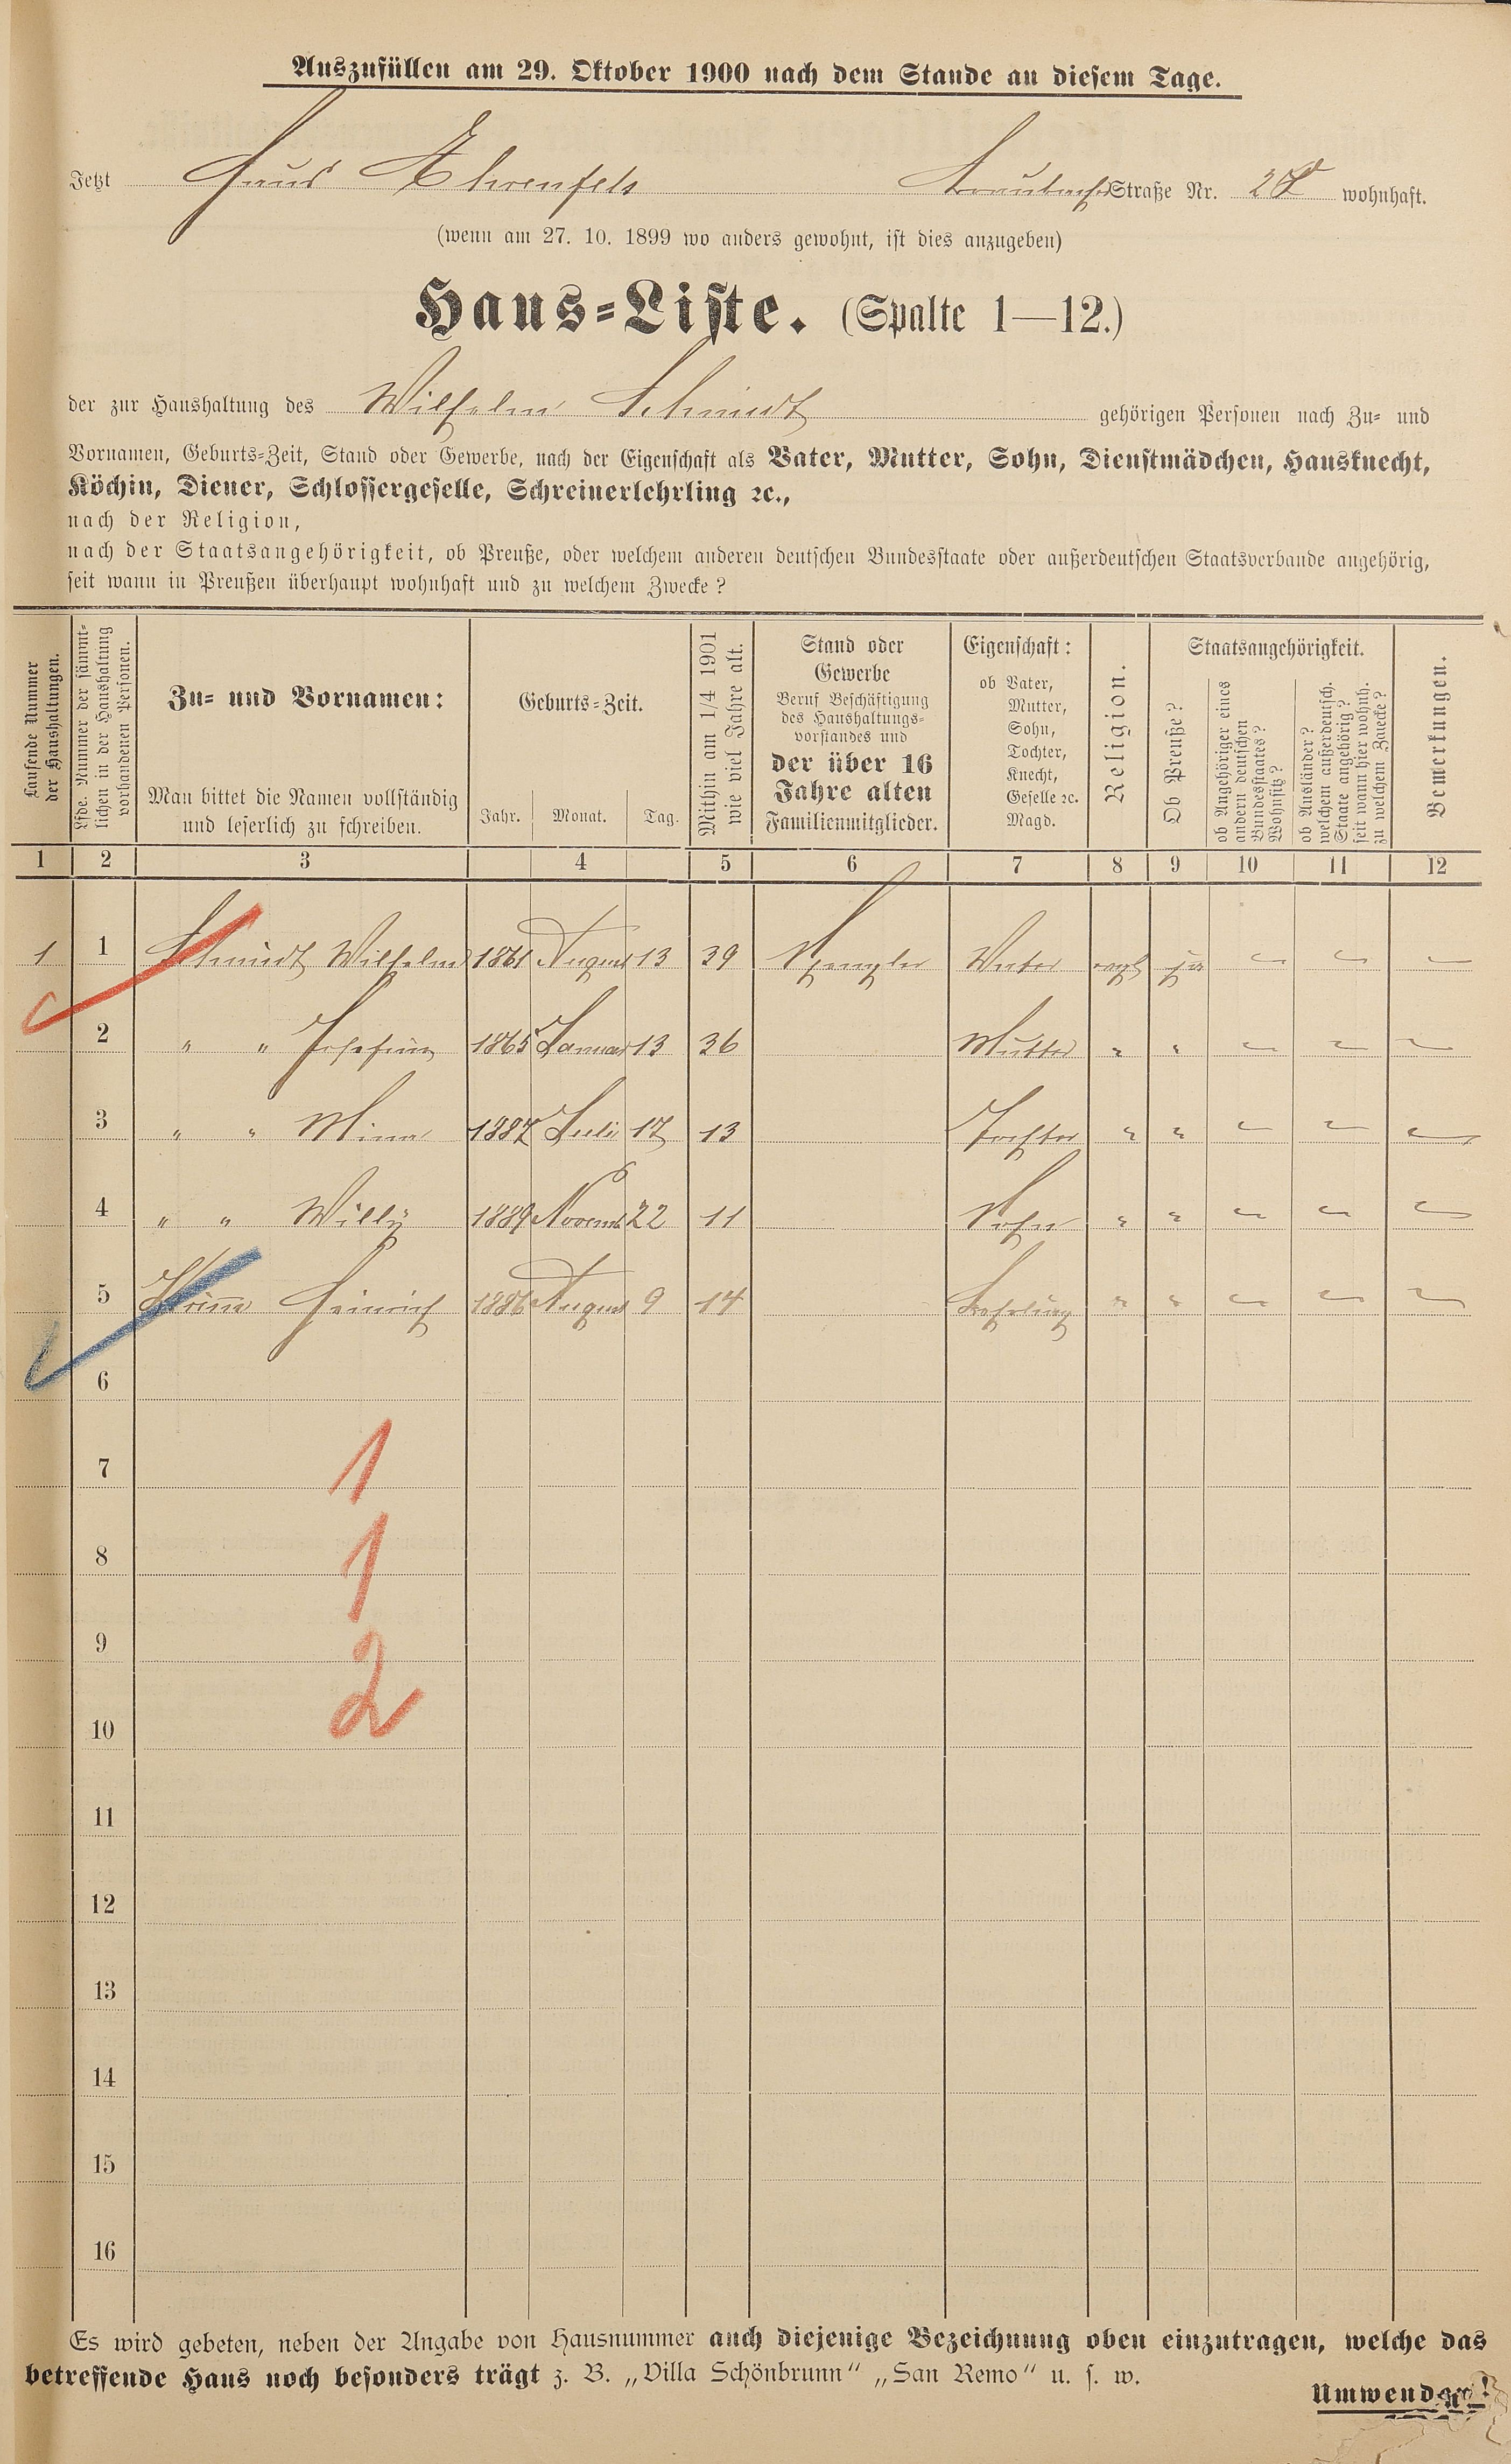 Auszufüllen am 29. Oktober 1900 nach dem Stande an diesem Tage.
Jetzt Haus Ehrenfels Straße Nr. 27 wohnhaft.
(wenn am 27. 10. 1899 wo anders gewohnt, ist dies anzugeben)
Haus-Liste. (Spalte 1—12.)
der zur Haushaltung des Wilhelm Schmidt gehörigen Personen nach Zu- und
Vornamen, Geburts-Zeit, Stand oder Gewerbe, nach der Eigenschaft als Vater, Mutter, Sohn, Dienstmädchen, Hausknecht,
Köchin, Diener, Schlossergeselle, Schreinerlehrling ꝛc.,
nach der Religion,
nach der Staatsangehörigkeit, ob Preuße, oder welchem anderen deutschen Bundesstaate oder außerdeutschen Staatsverbande angehörig,
seit wann in Preußen überhaupt wohnhaft und zu welchem Zwecke?
Laufende Nummer
der Haushaltungen.
Lfde. Nummer der sämmt-
lichen in der Haushaltung
vorhandenen Personen.
Zu- und Vornamen:
Man bittet die Namen vollständig
und leserlich zu schreiben.
Geburts-Zeit.
Jahr. Monat. Tag.
Mithin am 1/4 1901
wie viel Jahre alt.
Stand oder
Gewerbe
Beruf Beschäftigung
des Haushaltungs-
vorstandes und
der über 16
Jahre alten
Familienmitglieder.
Eigenschaft:
ob Vater,
Mutter,
Sohn,
Tochter,
Knecht,
Geselle ꝛc.
Magd.
Religion.
Staatsangehörigkeit.
Ob Preuße?
ob Angehöriger eines
andern deutschen
Bundesstaates?
Wohnsitz?
ob Ausländer?
welchem außerdeutsch.
Staate angehörig?
seit wann hier wohnh.
zu welchem Zwecke?
Bemerkungen.
1 2 3 4 5 6 7 8 9 10 11 12
1 1 Schmidt Wilhelm 1861 August 13 39 Spengler Vater evgl ja
2 " " Josefine 1865 Januar 13 36 Mutter " "
3 " " Mina 1887 Juli 17 13 Tochter " "
4 " " Willy 1889 Novemb 22 11 Sohn " "
5 Heinrich 1886 August 9 14 Lehrling " "
6
7 1
8 1
9
10 2
11
12
13
14
15
16
Es wird gebeten, neben der Angabe von Hausnummer auch diejenige Bezeichnung oben einzutragen, welche das
betreffende Haus noch besonders trägt z. B. „Villa Schönbrunn" „San Remo" u. s. w.
Umwenden!